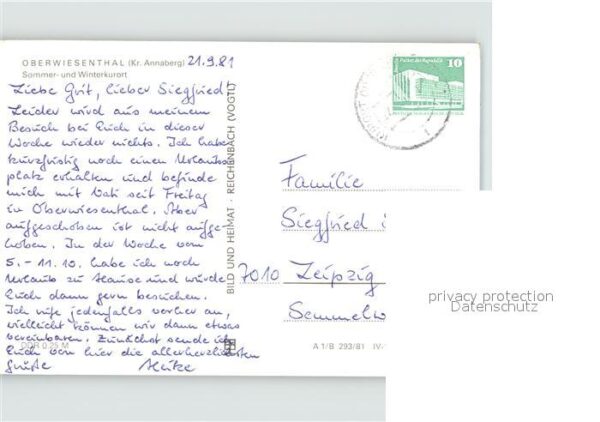 OBERWIESENTHAL (Kr. Annaberg) 21.9.81
Sommer- und Winterkurort
Liebe Grit, lieber Siegfried!
Leider wird aus meinem
Besuch bei Euch in dieser
Woche wieder nichts. Ich habe
kurzfristig noch einen Urlaubs
platz erhalten und befinde
mich mit Vati seit Freitag
in Oberwiesenthal. Aber
aufgeschoben ist nicht aufge-
hoben. In der Woche vom
5. - 11.10. habe ich noch
Urlaub zu Hause und würde
Euch dann gern besuchen.
Ich rufe jedenfalls vorher an,
vielleicht können wir dann etwas
vereinbaren. Zunächst sende ich
Euch von hier die allerherzlichsten
Grüße Heike
DDR 0,25 M
BILD UND HEIMAT · REICHENBACH (VOGTL)
A 1/B 293/81 IV-
Palast der Republik
10
Familie
Siegfried
7010 Leipzig
Semmelw
privacy protection
Datenschutz